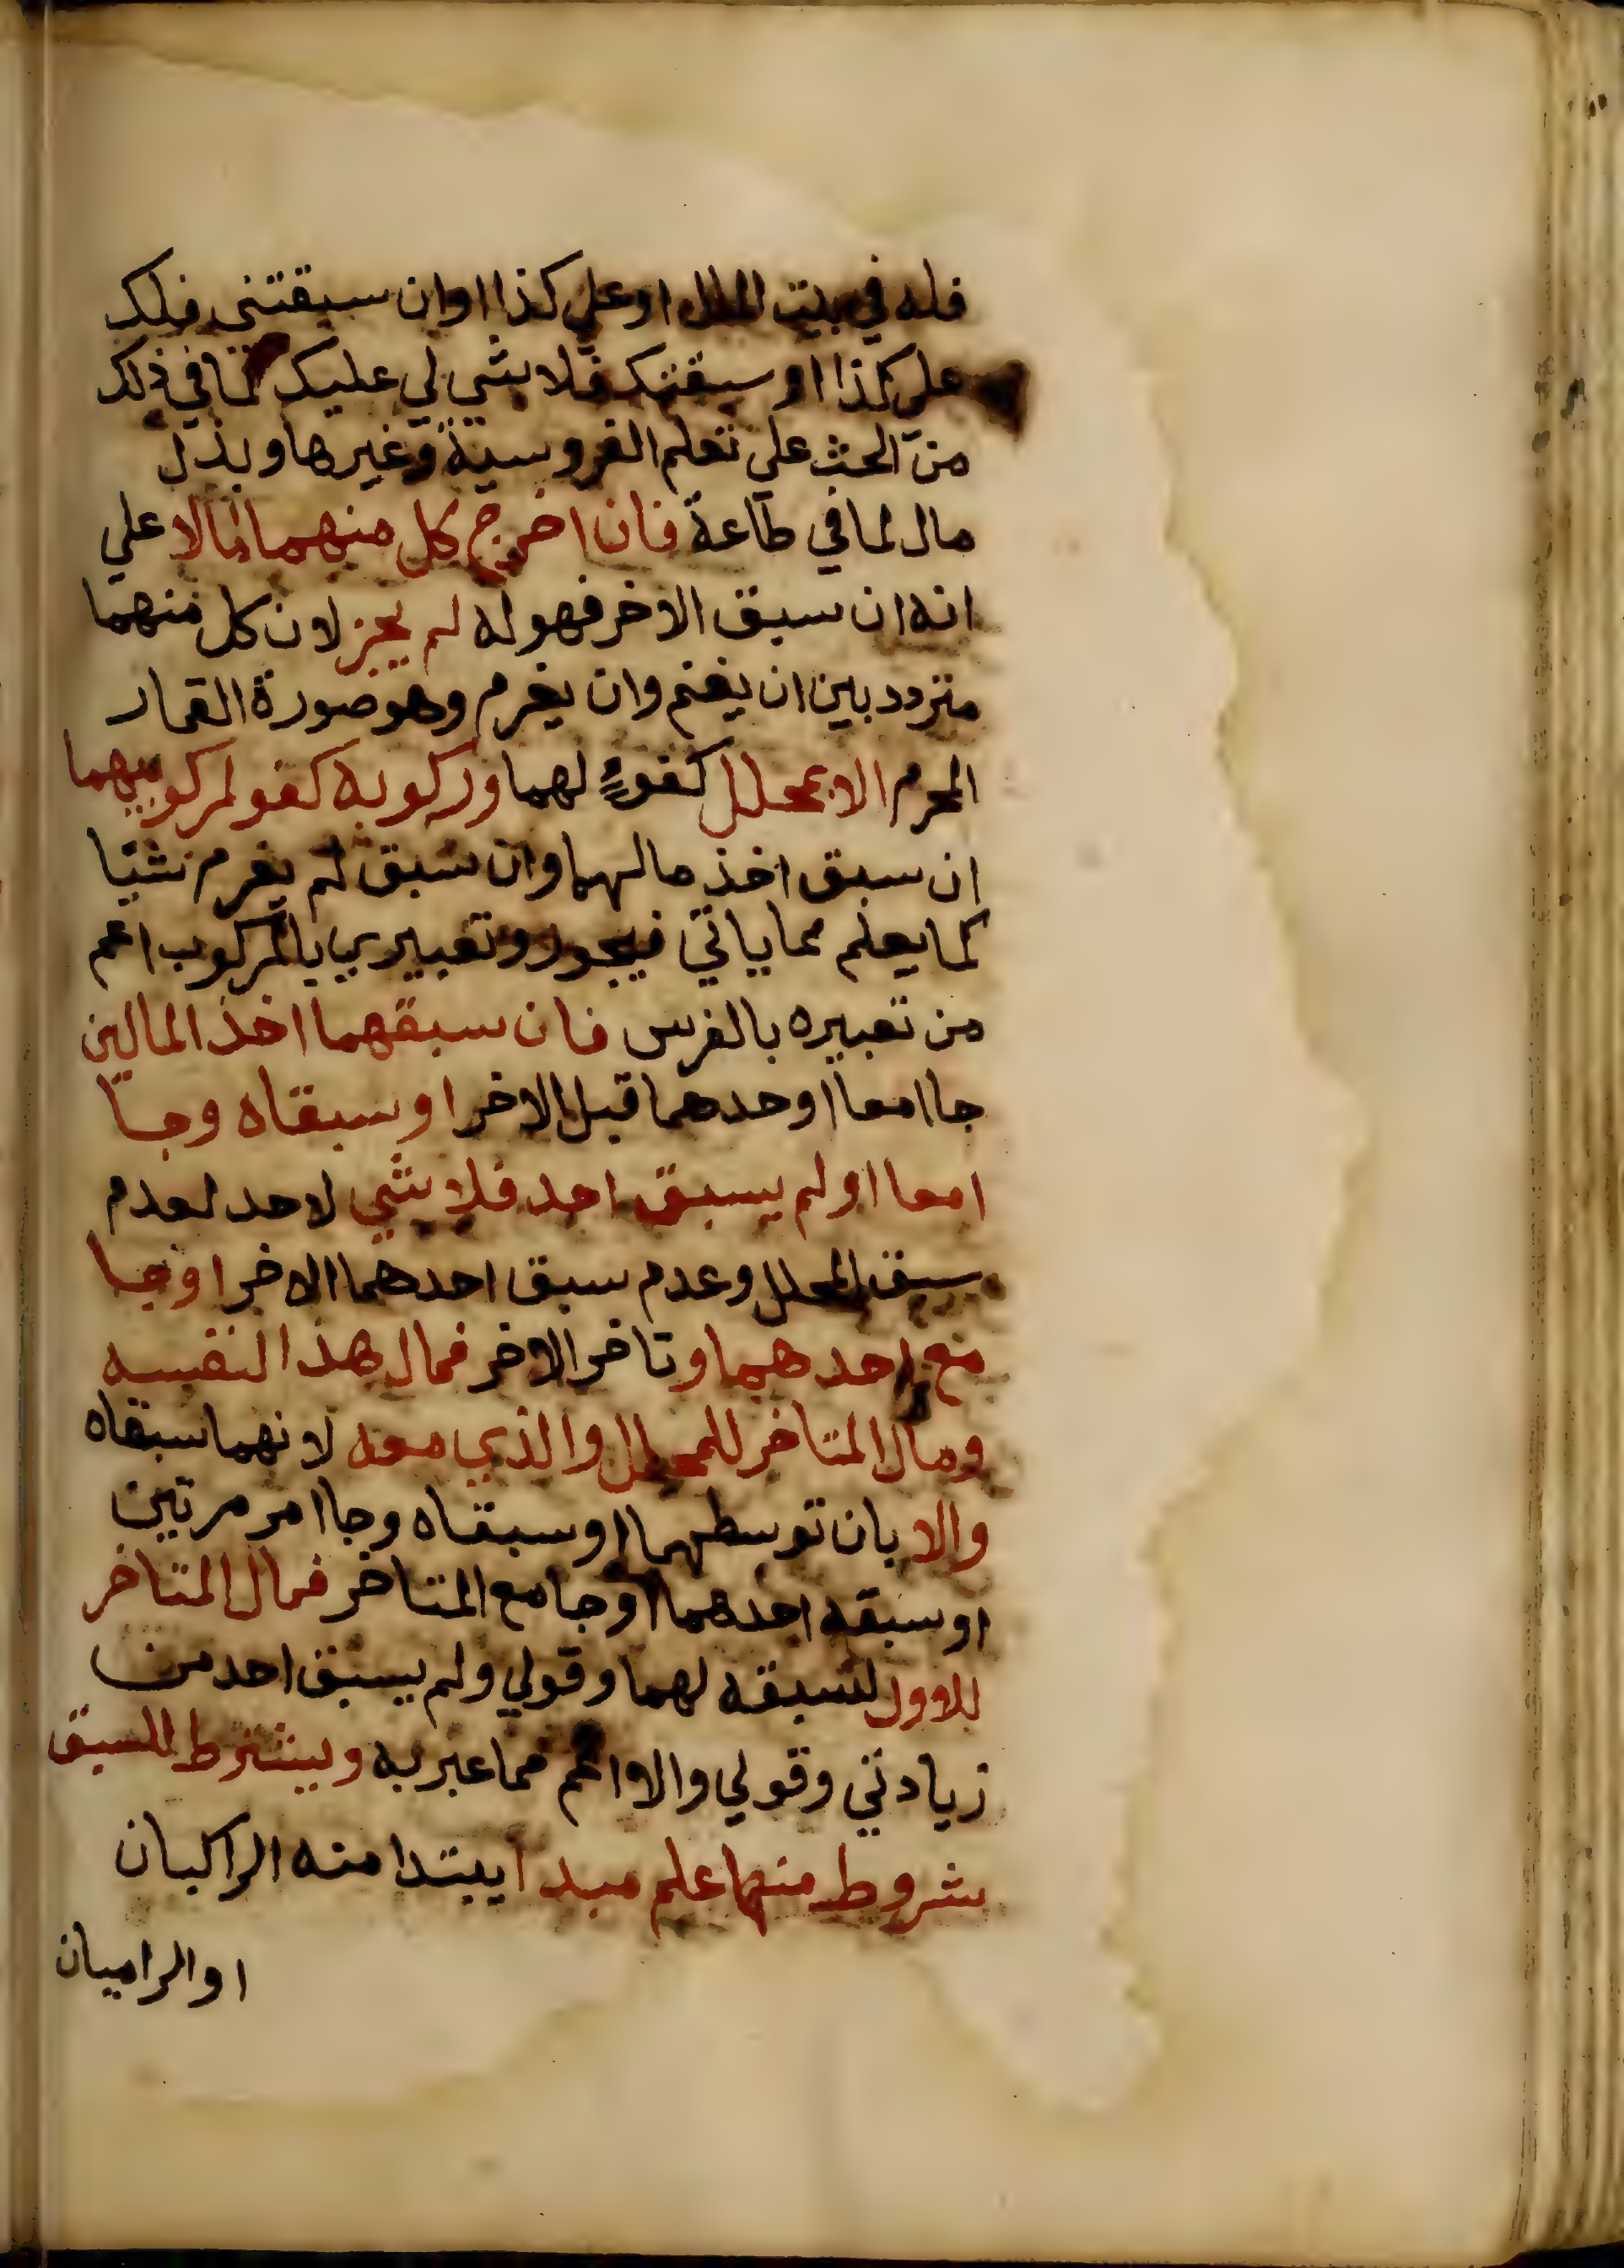 فله في بيت المال او علي كذا اوان سبقتني فلك
علي كذا او سبقتك فلا شي لي عليك لما في ذلك
من الحث علي تعلم الفروسية وغيرها و بذل
مال لما في طاعة فان اخرج كل منهما مالا علي
انه ان سبق الاخر فهو له لم يجز لان كل منهما
متردد بين ان يغنم وان يغرم وهو صورة القمار
المحرم الا بمحلل كفوءٍ لهما و ركوبه كفو لمركوبيهما
ان سبق اخذ مالهما وان سبق لم يغرم شيا
كما يعلم مما ياتي فيجوز وتعبيري بالمركوب اعم
من تعبيره بالفرس فان سبقهما اخذ المالين
جاا معا او حدهما قبل الاخر او سبقاه وجا
امعا او لم يسبق احد فلا شي لاحد لعدم
سبق المحلل وعدم سبق احدهما الاخر او جا
مع احدهما و تاخر الاخر فمال هذا لنفسه
ومال المتاخر للمحلل والذي معه لانهما سبقاه
والا بان توسطهما او سبقاه وجاا مر مرتبين
او سبقه احدهما او جا مع المتاخر فمال المتاخر
للاول لسبقه لهما وقولي ولم يسبق احد من
زيادتي وقولي والا اعم مما عبر به ويشترط للسبق
شروط منها علم مبدا يبتدا منه الراكبان
او الراميان